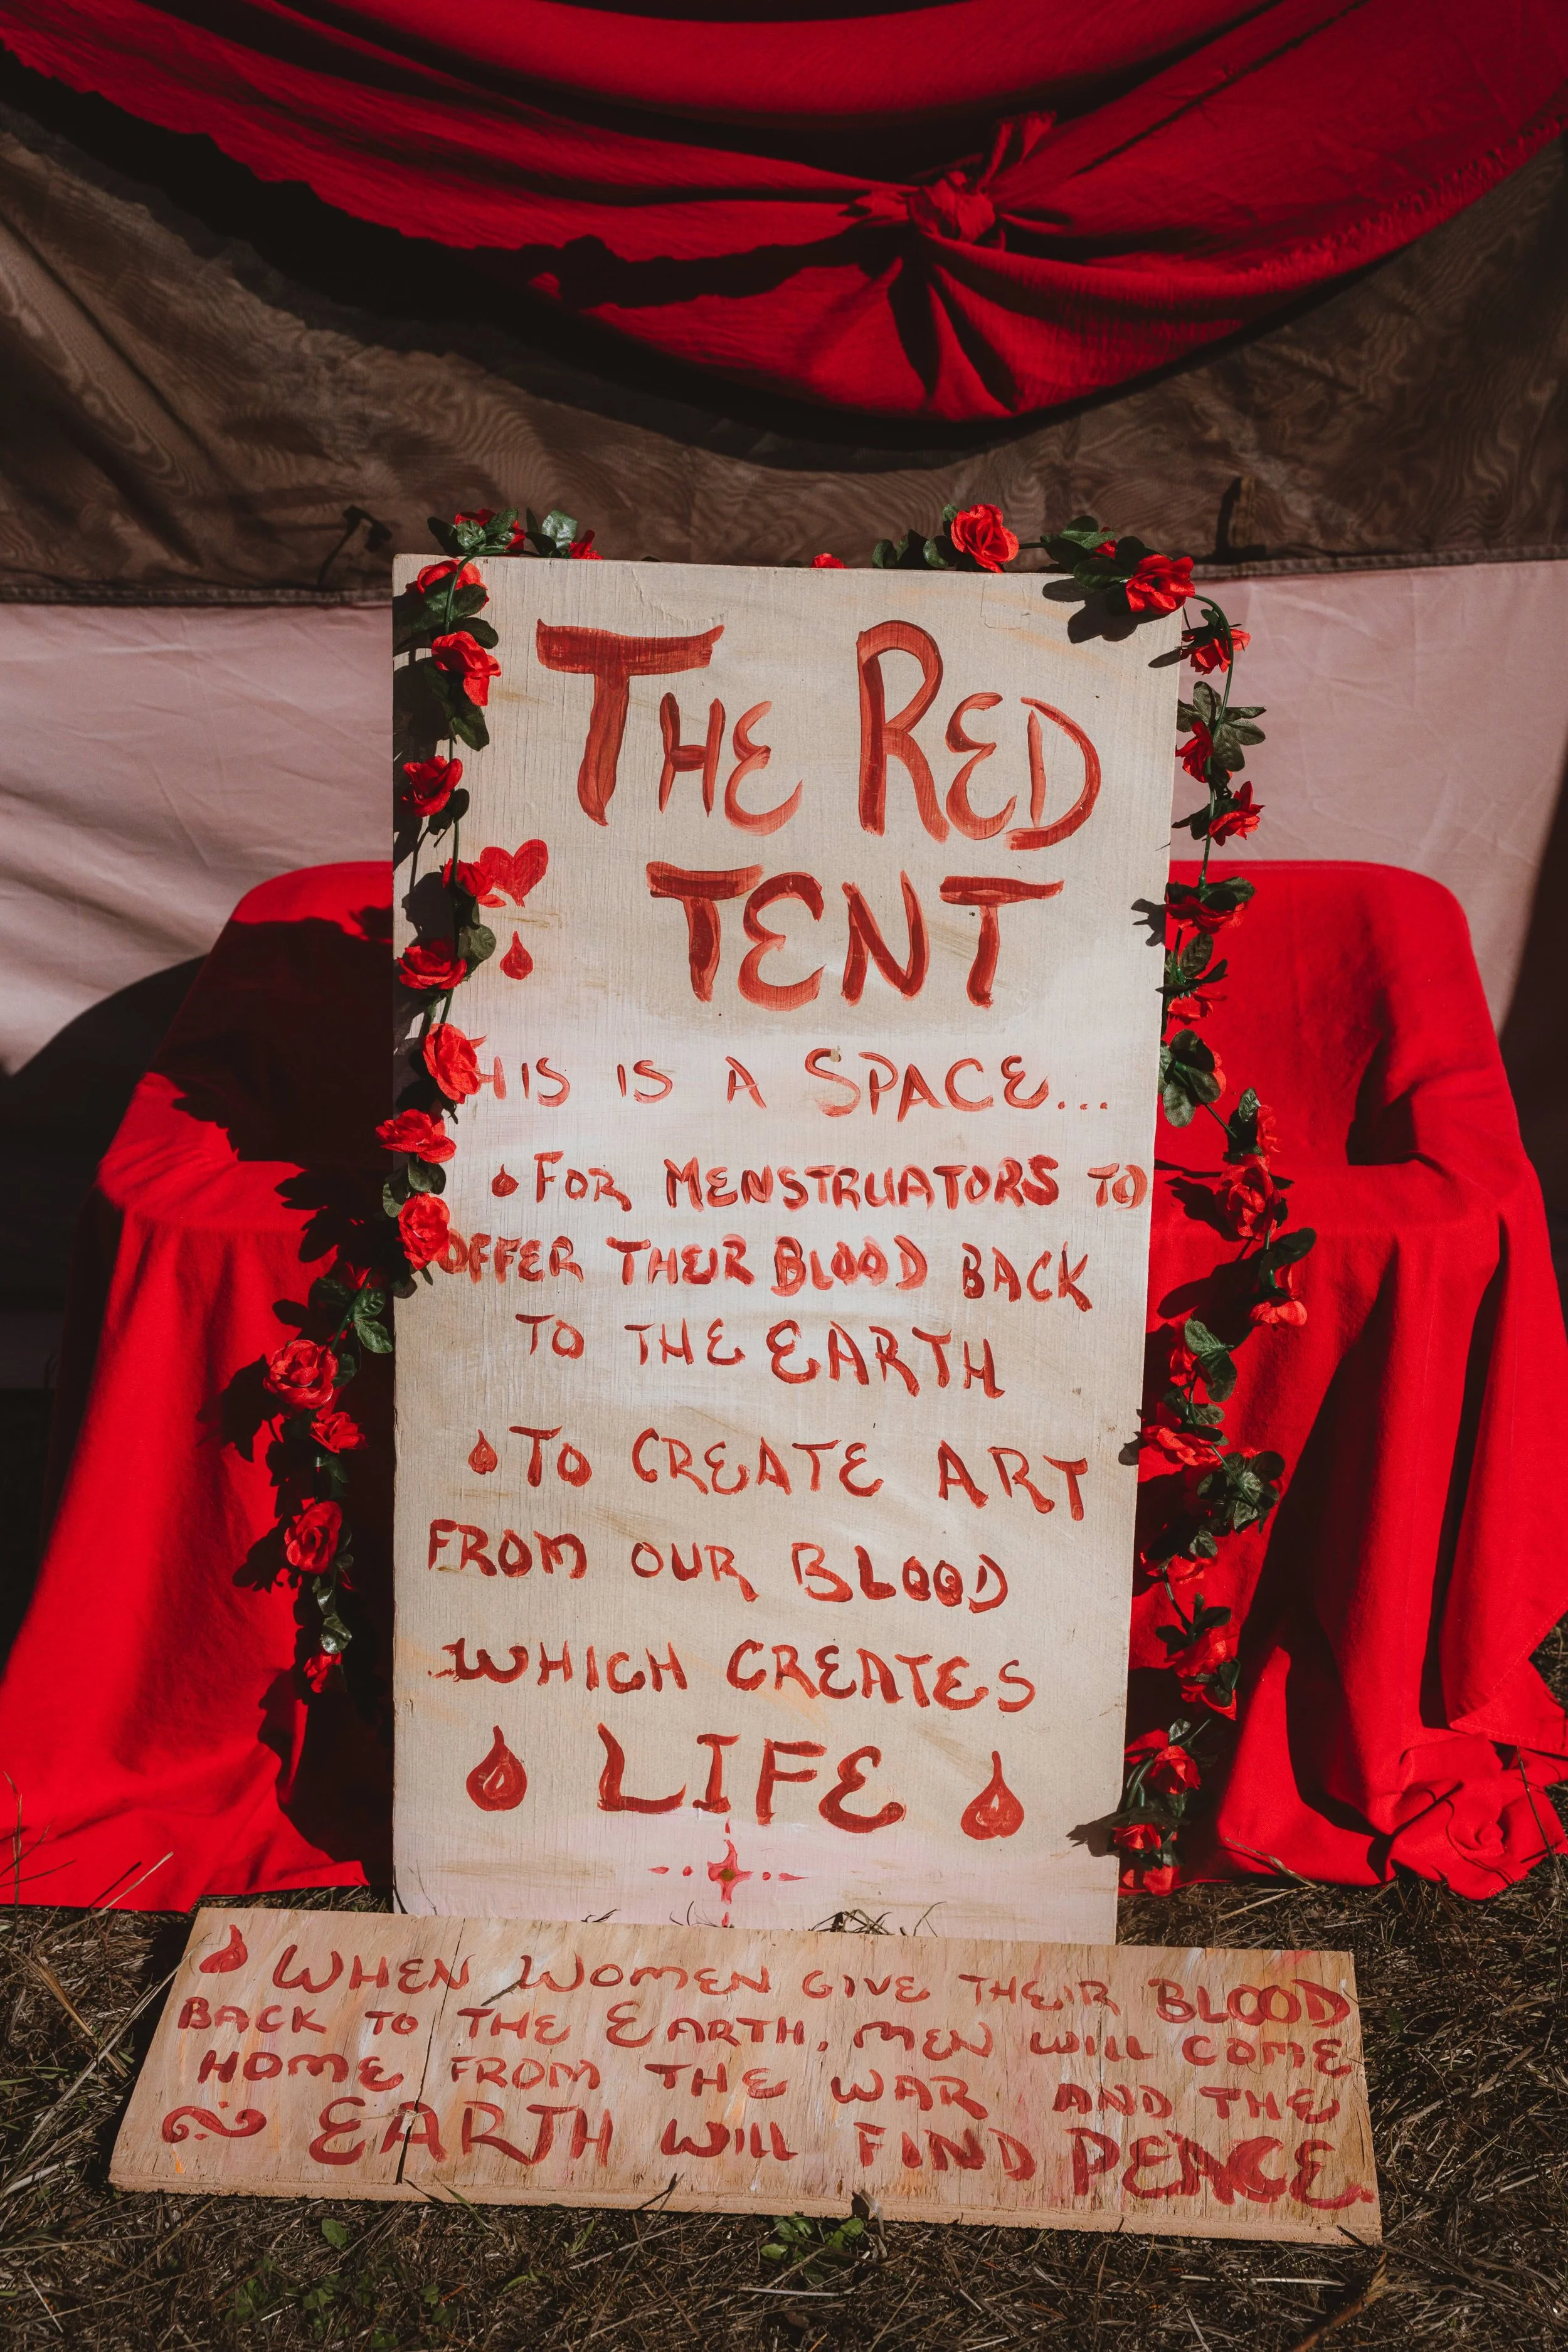 THE RED
TENT
THIS IS A SPACE...
FOR MENSTRUATORS TO
OFFER THEIR BLOOD BACK
TO THE EARTH
TO CREATE ART
FROM OUR BLOOD
WHICH CREATES
LIFE
WHEN WOMEN GIVE THEIR BLOOD
BACK TO THE EARTH, MEN WILL COME
HOME FROM THE WAR AND THE
EARTH WILL FIND PEACE